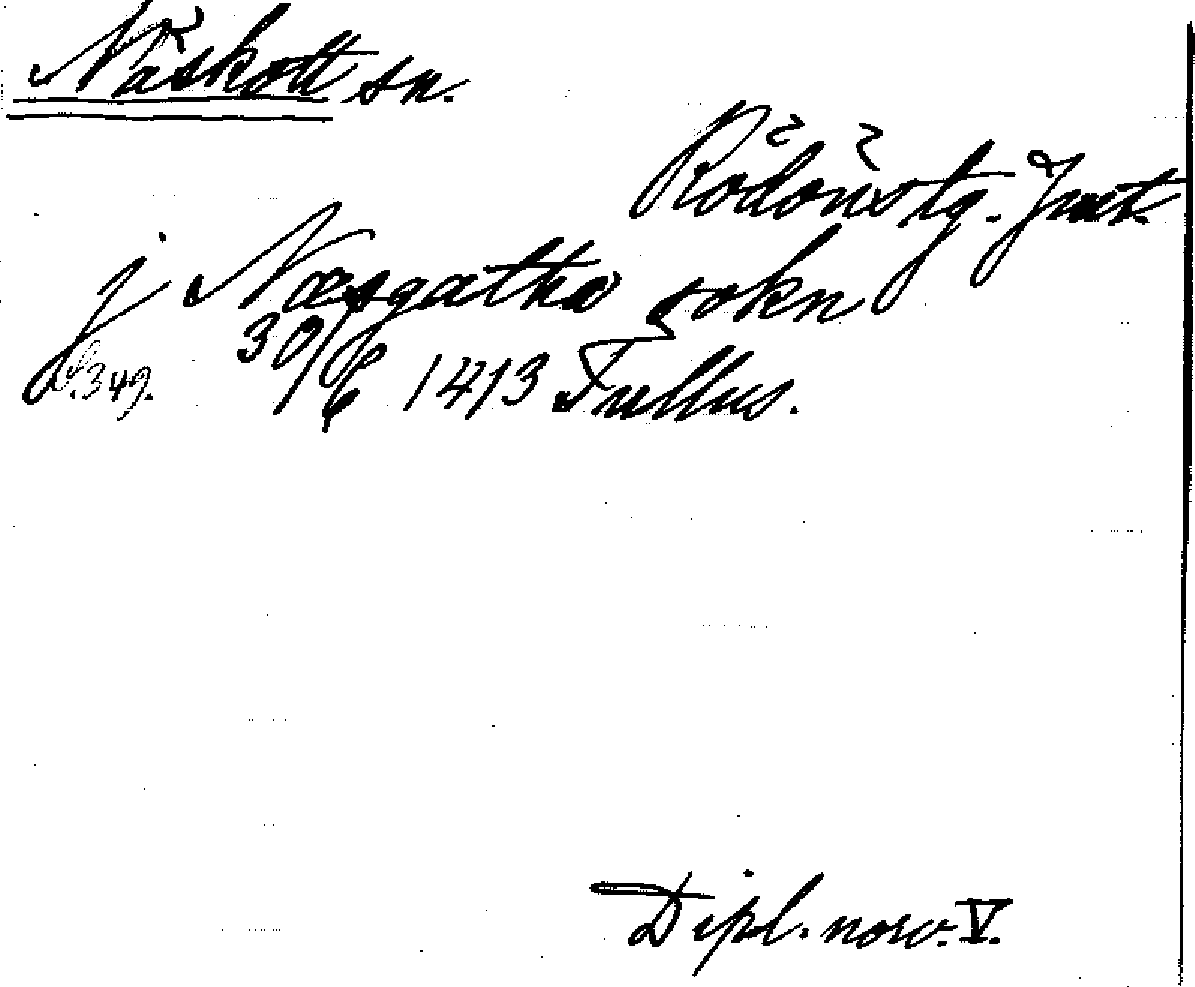 Näskott sn.
Rödöns tg. Jmt.
j Næsgattho sokn
S. 349. 30/6 1413 Trullus.
Dipl. norv. V.